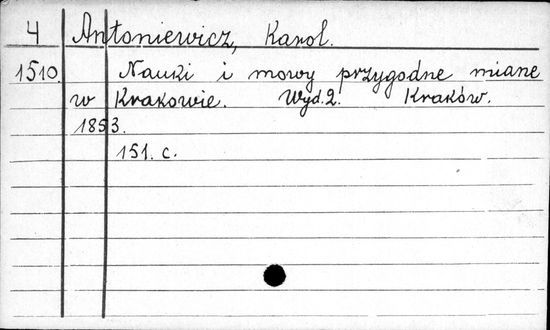 4 Antoniewicz, Karol.
1510. Nauki i mowy przygodne miane
w Krakowie. Wyd. 2. Kraków.
1853.
151. c.